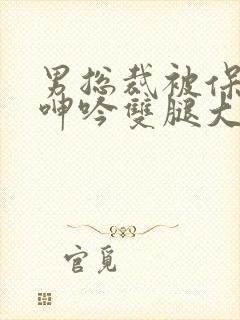 男总裁被保
呻吟雙腿大
官觅